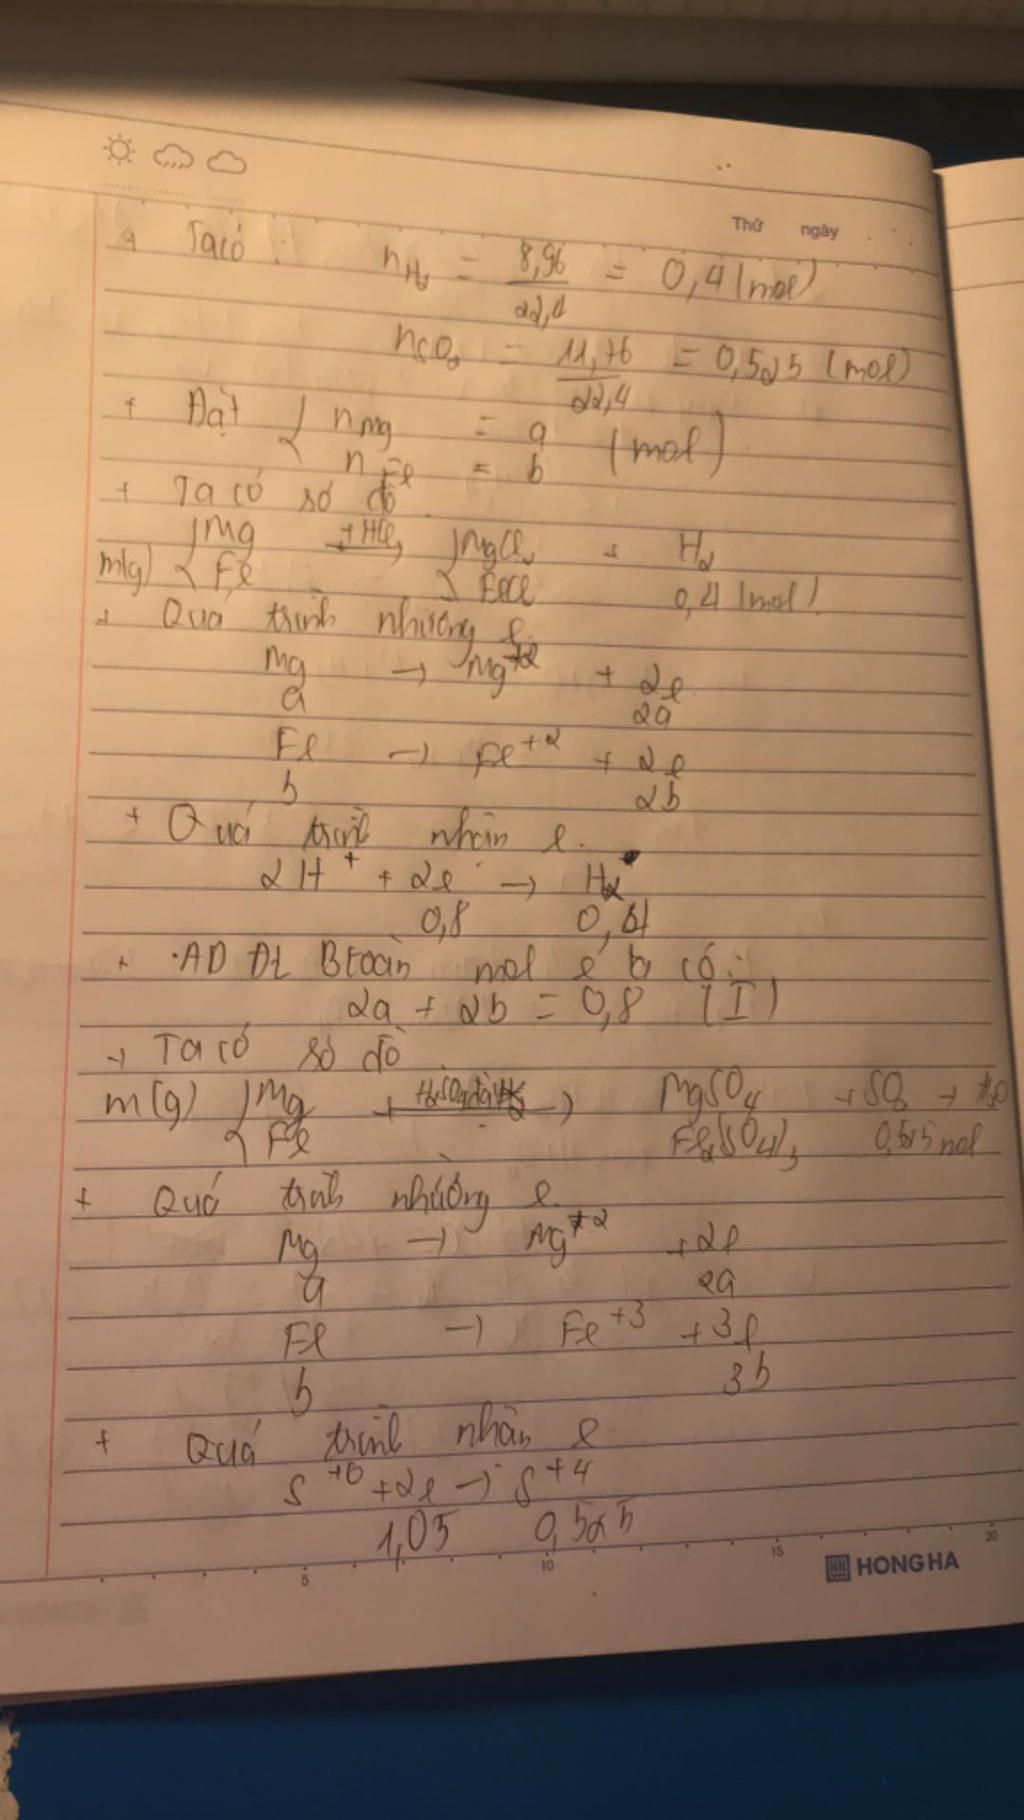 Thứ ngày
+ Ta có : nH2 = 8,96 / 22,4 = 0,4 (mol)
nSO2 = 11,76 / 22,4 = 0,525 (mol)
+ Đặt { nMg = a (mol)
nFe = b
+ Ta có sơ đồ
m(g) { Mg +HCl → { MgCl2 + H2
Fe FeCl 0,4 (mol)
+ Quá trình nhường e.
Mg → Mg+2 + 2e
a 2a
Fe → Fe+2 + 2e
b 2b
+ Quá trình nhận e.
2H+ + 2e → H2
0,8 0,4
+ AD ĐL Btoàn mol e ta có:
2a + 2b = 0,8 (I)
+ Ta có sơ đồ
m(g) { Mg + H2SO4 → MgSO4 + SO2 + H2O
Fe Fe2(SO4)3 0,525 mol
+ Quá trình nhường e.
Mg → Mg+2 + 2e
a 2a
Fe → Fe+3 + 3e
b 3b
+ Quá trình nhận e
S+6 + 2e → S+4
1,05 0,525
5 10 15 20
HH HONG HA